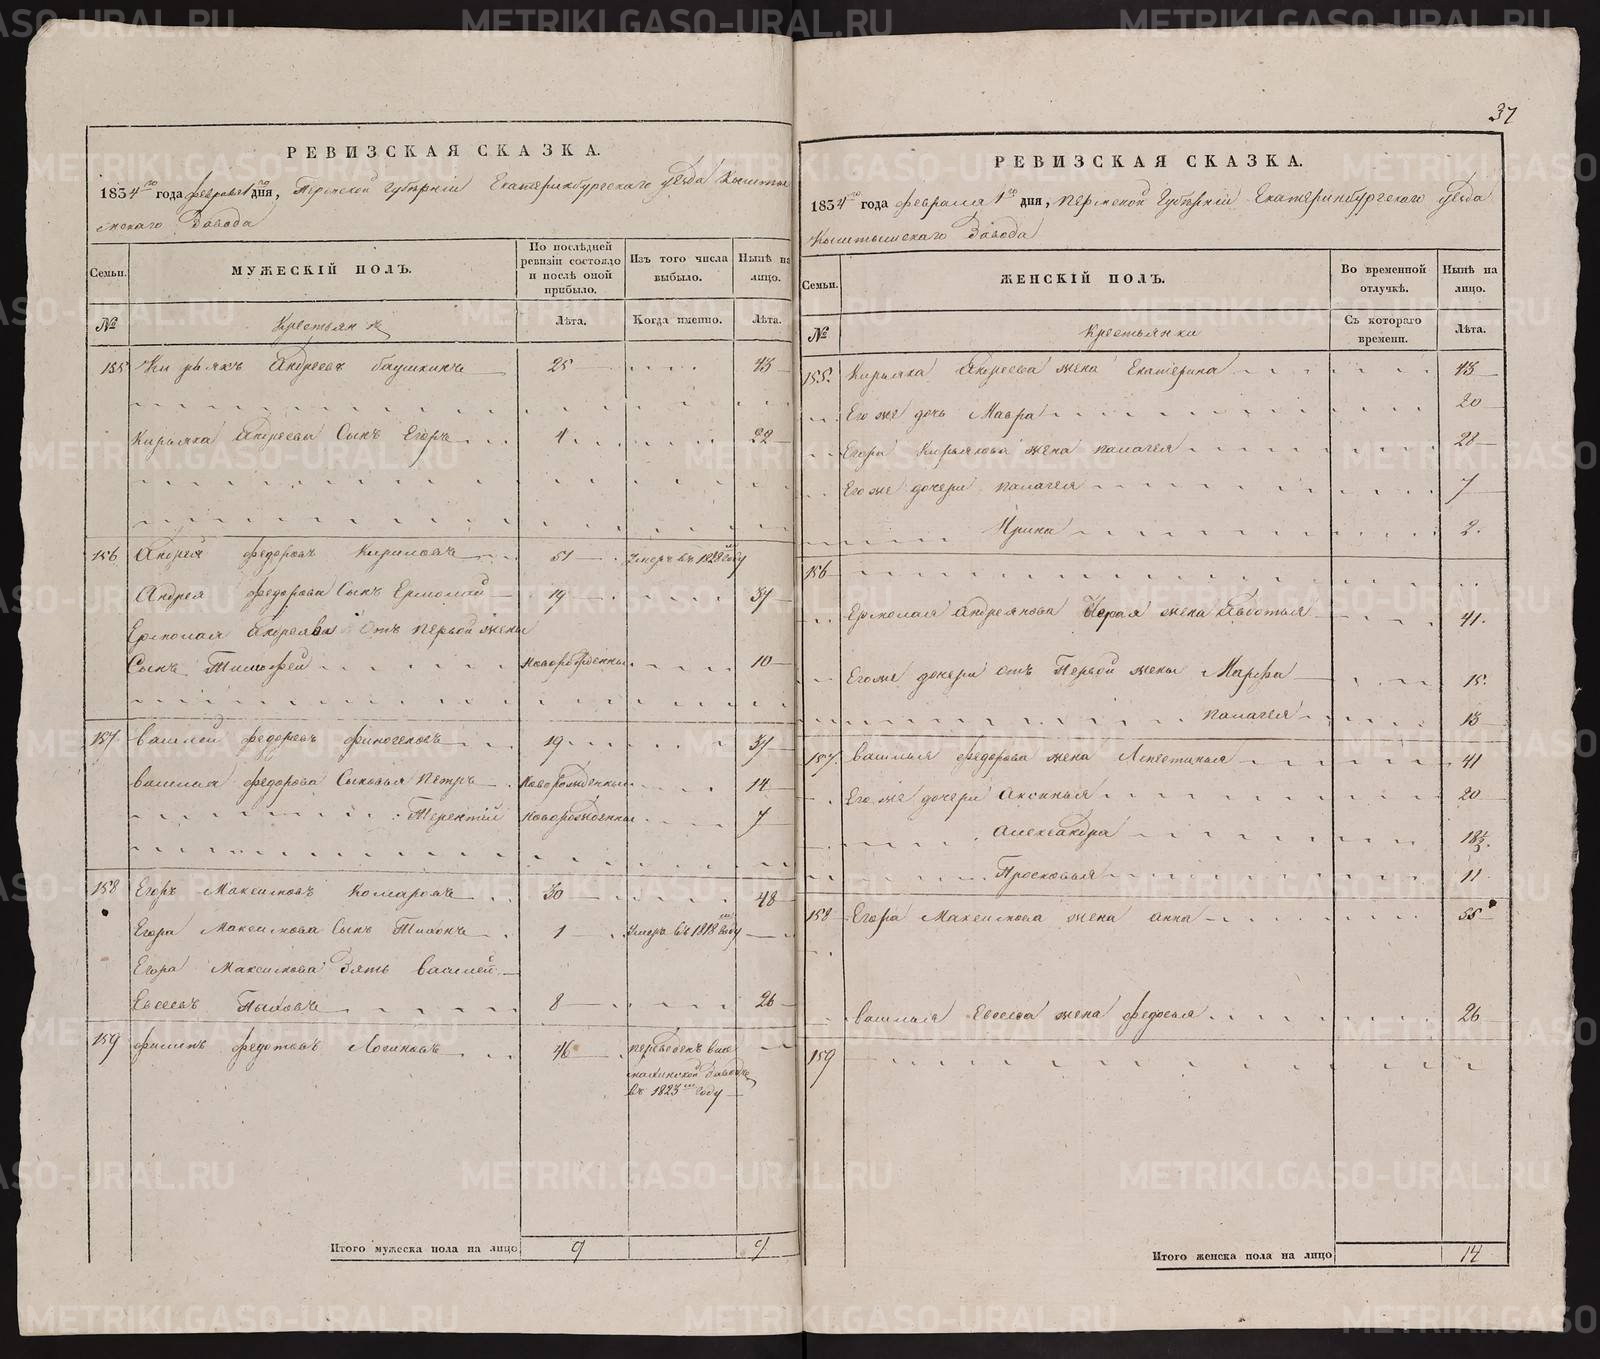 РЕВИЗСКАЯ СКАЗКА.
1834го года февраля 1го дня, Пермской Губерніи Екатеринбургскаго уезда Кышты
мскаго Завода
Семьи. МУЖЕСКІЙ ПОЛЪ. По послѣдней ревизіи состояло и послѣ оной прибыло. Изъ того числа выбыло. Нынѣ на лицо.
№ Крестьян Лѣта. Когда именно. Лѣта.
155 Кирьякъ Андреевъ 25 43
Кирьяка Андреева Сынъ Егоръ 4 22
156 Андрей федоровъ Кириловъ 51 Умеръ въ 1828м году
Андрея федорова Сынъ Ермолай 19 37
Ермолая Андреева отъ первой жены
Сынъ Тимофей новорожденны 10
157 василей федоровъ финогеновъ 19 37
василья федорова Сыновья Петръ новорожденны 14
Терентій новорожденны 7
158 Егоръ Максимовъ Комаровъ 30 48
Егора Максимова Сынъ Тихонъ 1 Умеръ въ 1818м году
Егора Максимова Зять василей
Евсеевъ 8 26
159 филипъ федотовъ Логиновъ 46 переведенъ в
Заводъ
въ 1823м году
Итого мужеска пола на лицо 9 9
37
РЕВИЗСКАЯ СКАЗКА.
1834го года февраля 1го дня, Пермской Губерніи Екатеринбургскаго уезда
Кыштымскаго Завода
Семьи. ЖЕНСКІЙ ПОЛЪ. Во временной отлучкѣ. Нынѣ на лицо.
№ Крестьянки Съ котораго времени. Лѣта.
155. Кирьяка Андреева жена Екатерина 43
Его же дочь Мавра 20
Егора Кирьякова жена палагея 28
Его же дочери палагея 7
Ирина 2.
156
Ермолая андреянова жена 41.
Его же дочери отъ Первой жены Марфа 15.
палагея 13
157. василья федорова жена 41
Его же дочери аксинья 20
александра
Просковья 11
158 Егора Максимова жена анна 55
василья Евсеева жена федосья 26
159
Итого женска пола на лицо 14
METRIKI.GASO-URAL.RU